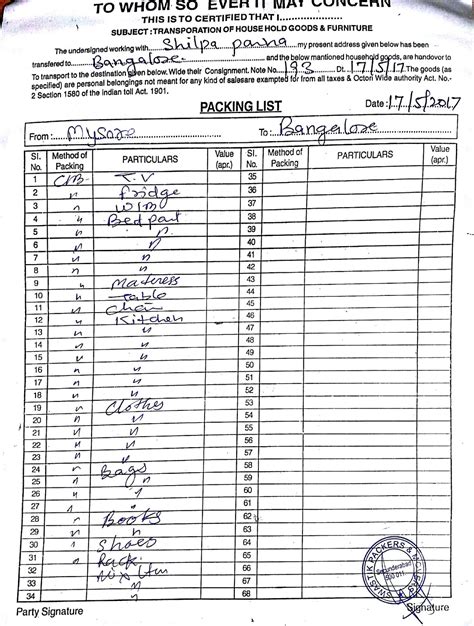 TO WHOM SO EVER IT MAY CONCERN
THIS IS TO CERTIFIED THAT I
SUBJECT : TRANSPORATION OF HOUSE HOLD GOODS & FURNITURE
The undersigned working with Shilpa my present address given below has been
transfered to Bangalose and the below mentioned household goods, are handover to
To transport to the destination given below. Wide their Consignment. Note No. 193 Dt. 17/5/17 The goods (as
specified) are personal belongings not meant for any kind of salesare exampted for from all taxes & Octori Wide authority Act. No.-
2 Section 1580 of the indian toll Act. 1901.
PACKING LIST Date : 17/5/2017
From : Mysore To : Bangalose
Sl. No. Method of Packing PARTICULARS Value (apr.) Sl. No. Method of Packing PARTICULARS Value (apr.)
1 C/B T.V 35
2 " fridge 36
3 " W/B 37
4 " Bed part 38
5 " " 39
6 " " 40
7 " " 41
8 " " 42
9 " Mattress 43
10 " Table 44
11 " Chair 45
12 " Kitchen 46
13 " " 47
14 " " 48
15 " " 49
16 " " 50
17 " " 51
18 " " 52
19 " Clothes 53
20 " " 54
21 " " 55
22 " " 56
23 " " 57
24 " Bags 58
25 " " 59
26 " " 60
27 " " 61
28 " Books 62
29 " " 63
30 " Shoes 64
31 " Rack
32
33
34 68
SWASTIK PACKERS & MOVERS
Secunderabad
500 011
Party Signature Signature